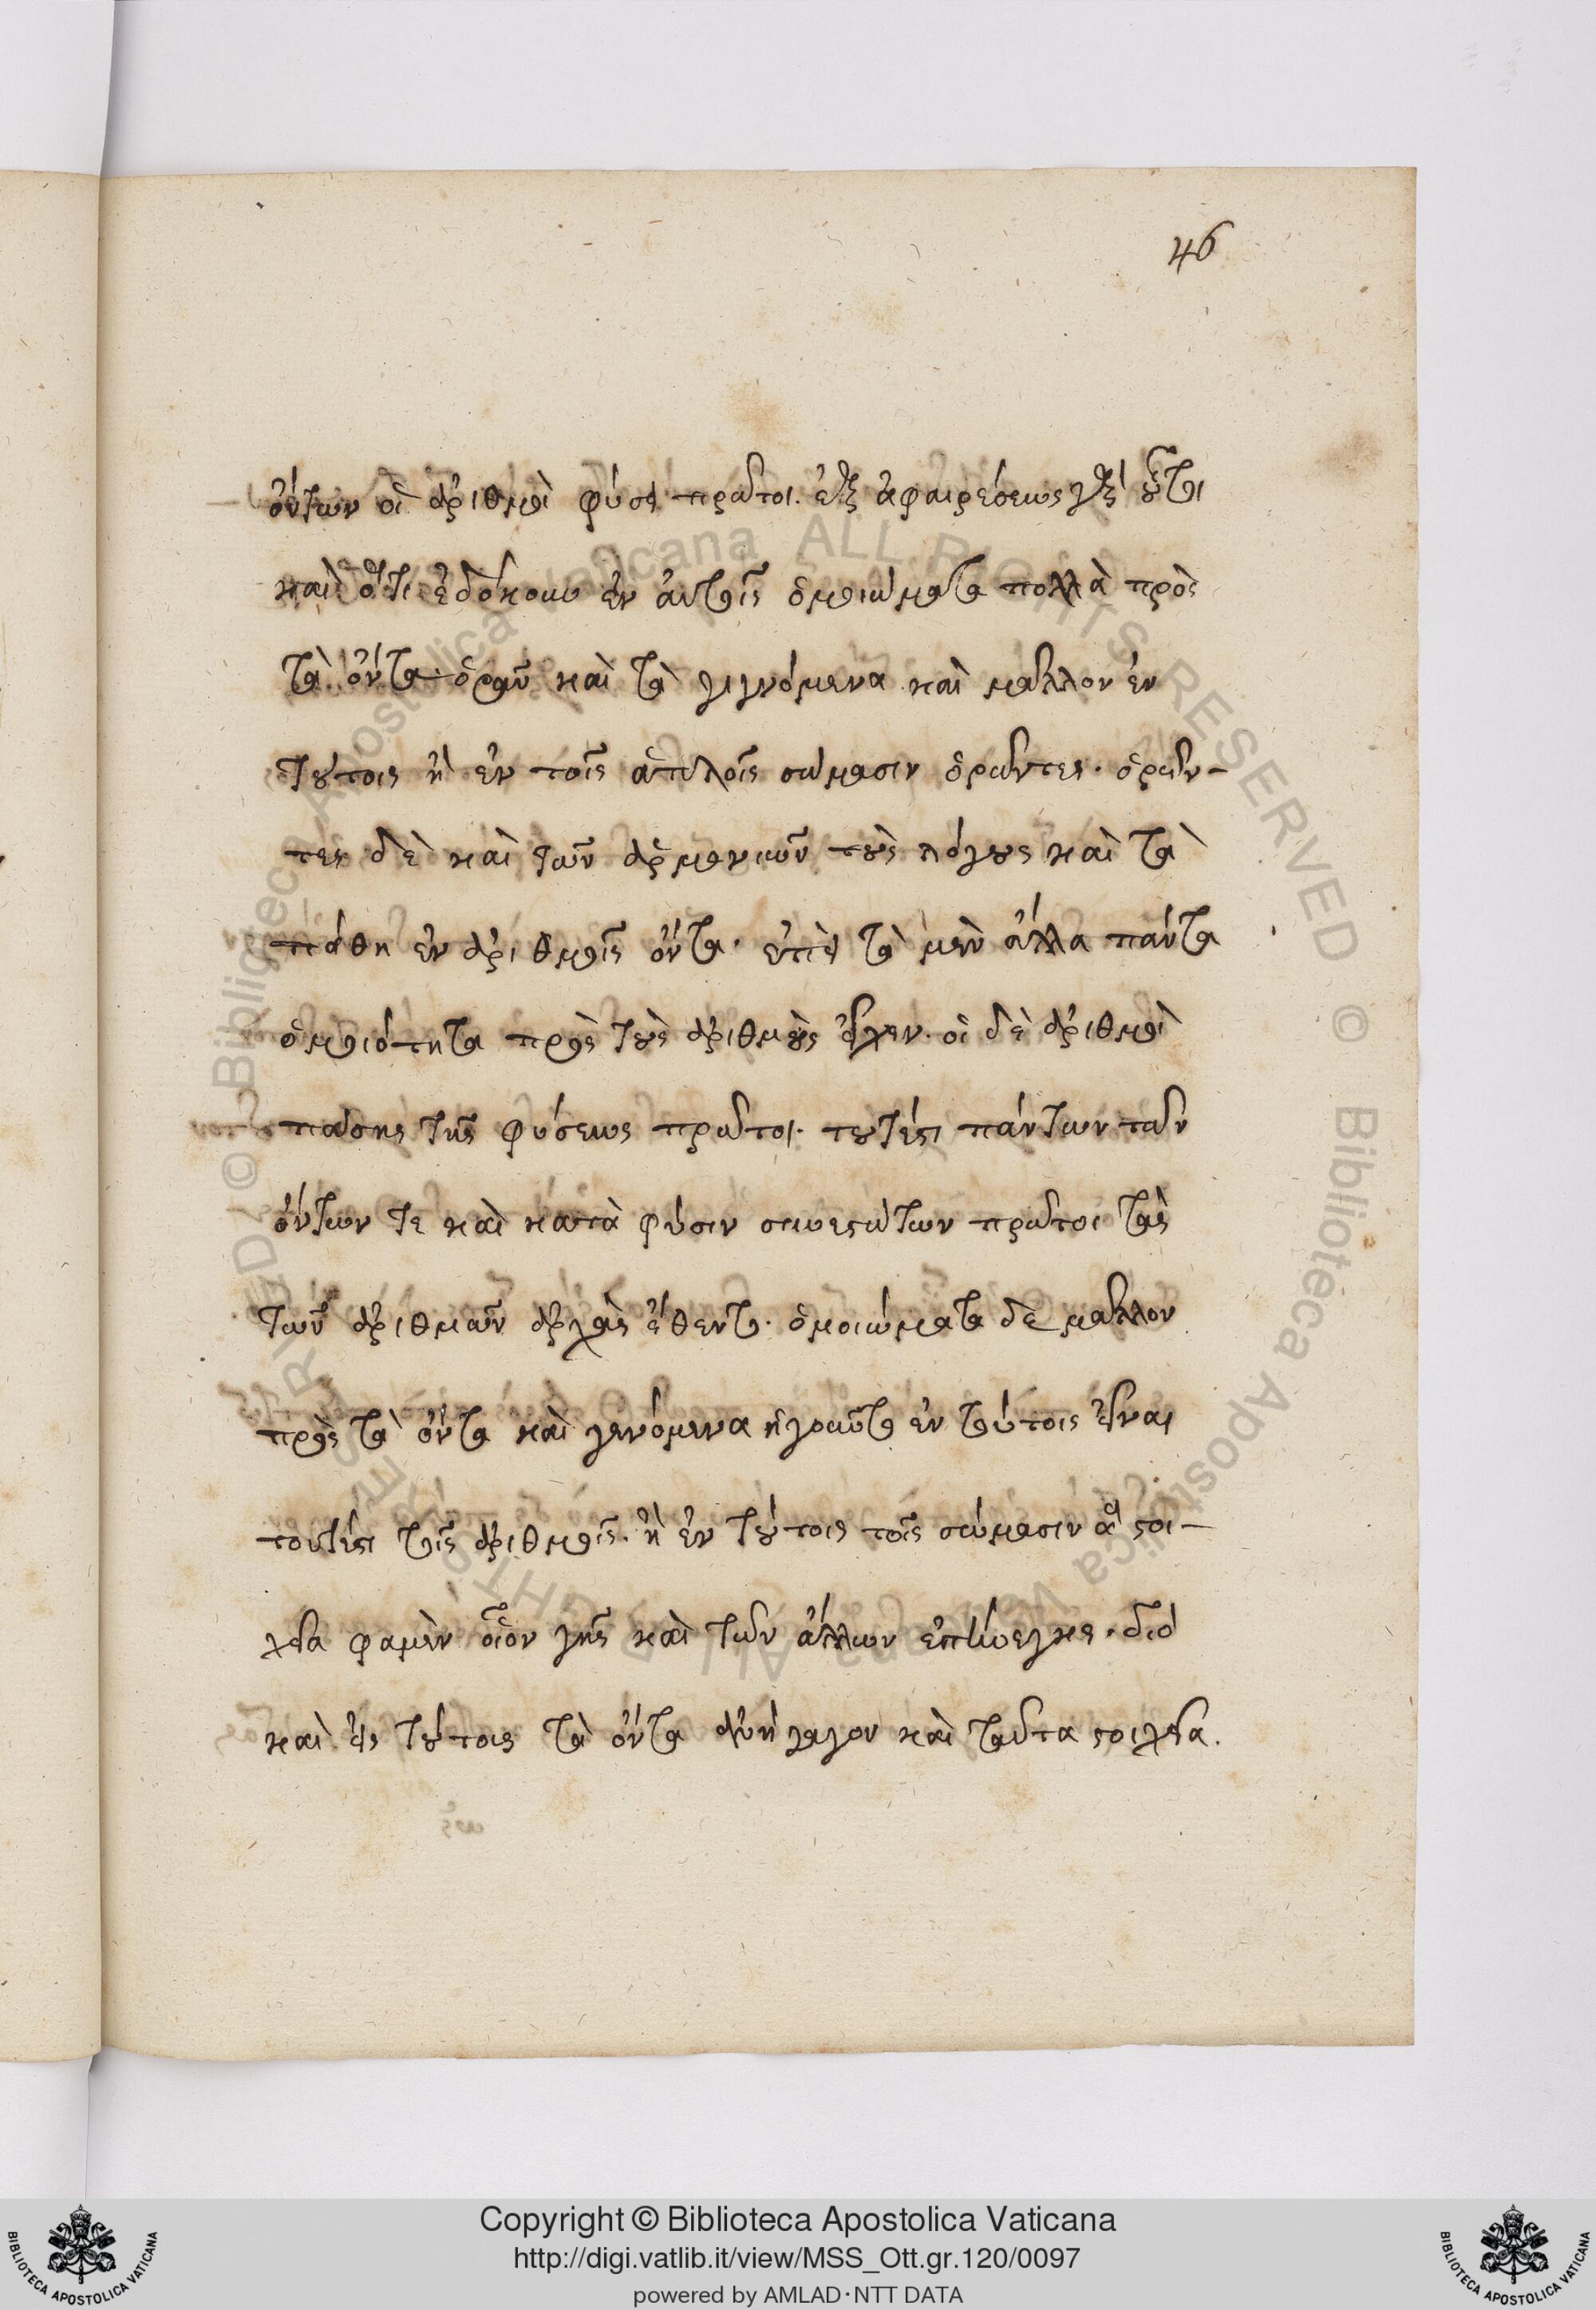 46
ὄντων οἱ ἀριθμοὶ φύσει πρῶτοι. ἐξ ἀφαιρέσεως γὰρ οὗτοι
καὶ ὅτι ἐδόκουν ἐν αὐτοῖς ὁμοιώματα πολλὰ πρὸς
τὰ ὄντα ὁρᾶν καὶ τὰ γιγνόμενα καὶ μᾶλλον ἐν
τούτοις ἢ ἐν τοῖς ἁπλοῖς σώμασιν ὁρῶντες. ὁρῶν-
τες δὲ καὶ τῶν ἁρμονιῶν τοὺς λόγους καὶ τὰ
πάθη ἐν ἀριθμοῖς ὄντα. ἐπεὶ τὰ μὲν ἄλλα πάντα
ὁμοιότητα πρὸς τοὺς ἀριθμοὺς εἶχεν. οἱ δὲ ἀριθμοὶ
πάσης τῆς φύσεως πρῶτοι. τουτέστι πάντων τῶν
ὄντων τε καὶ κατὰ φύσιν συνεστώτων πρῶτοι τὰς
τῶν ἀριθμῶν ἀρχὰς ἔθεντο. ὁμοιώματα δὲ μᾶλλον
πρὸς τὰ ὄντα καὶ γενόμενα ἡγοῦντο ἐν τούτοις εἶναι
τουτέστι τοῖς ἀριθμοῖς. ἢ ἐν τούτοις τοῖς σώμασιν ἃ στοι-
χεῖα φαμὲν οἷον γῆς καὶ τῶν ἄλλων ἐπήνεγκε. διὸ
καὶ εἰς τούτοις τὰ ὄντα ἀνήγαγον καὶ ταῦτα στοιχεῖα.
Copyright © Biblioteca Apostolica Vaticana
http://digi.vatlib.it/view/MSS_Ott.gr.120/0097
powered by AMLAD·NTT DATA